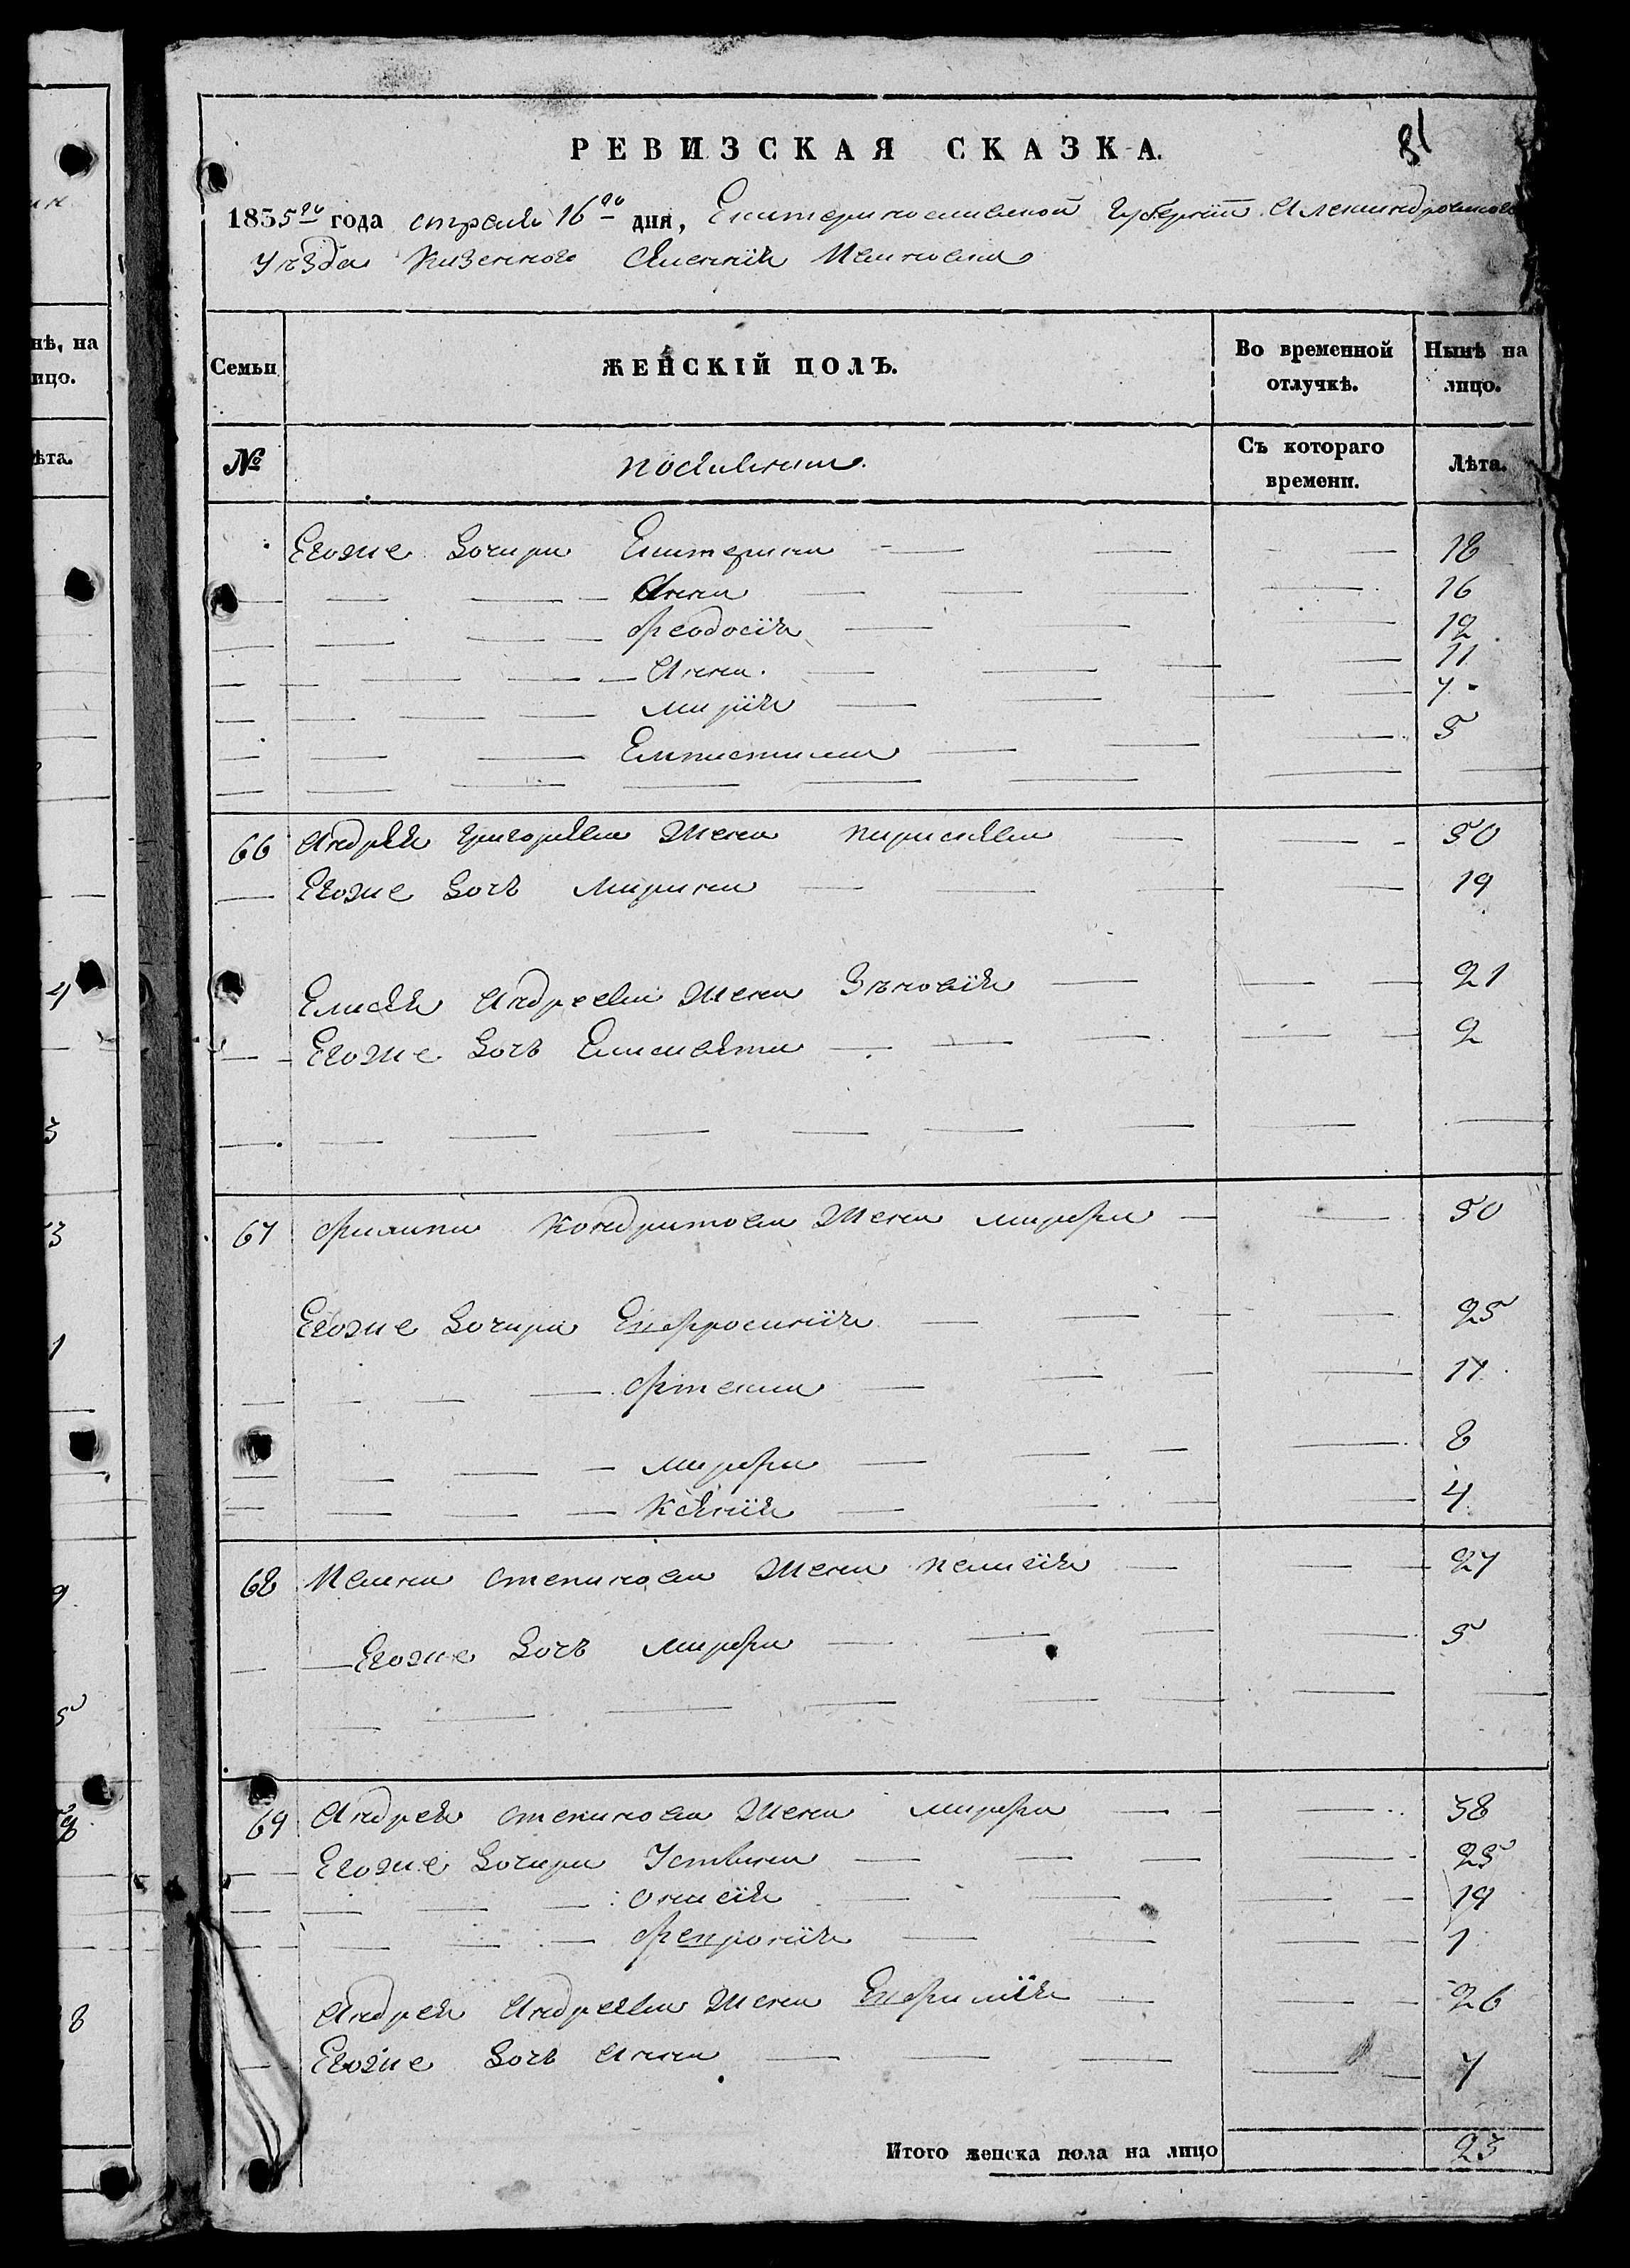 РЕВИЗСКАЯ СКАЗКА.
81
1835го года апреля 16го дня, Екатеринославской Губерніи Александровского
Уѣзда Казенного Селенія Ивановки
Семьи
ЖЕНСКІЙ ПОЛЪ.
Во временной отлучкѣ.
Нынѣ на лицо.
№
поселянки.
Съ котораго времени.
Лѣта.
Егоже Дочери Екатерина 18
Анна 16
Феодосія 12
Анна 11
Марія 7
Епистимия 5
66 Андрея Григорьева Жена Параскева 50
Егоже Дочь Марина 19
Елисея Андреева Жена Зѣновія 21
Егоже Дочь Елисавета 2
67 Филипа Кондратова Жена Марфа 50
Егоже Дочери Евфросинія 25
17
Марфа 8
Ксенія 4
68 Ивана Степанова Жена Пелагія 27
Егоже Дочь Марфа 5
69 Андрея Степанова Жена Марфа 58
Егоже Дочери Устинья 25
Анисія 19
Февронія 1
Андрея Андреева Жена Евфимія 26
Егоже Дочь Анна 7
Итого женска пола на лицо 23
нѣ, на
ицо.
ѣта.